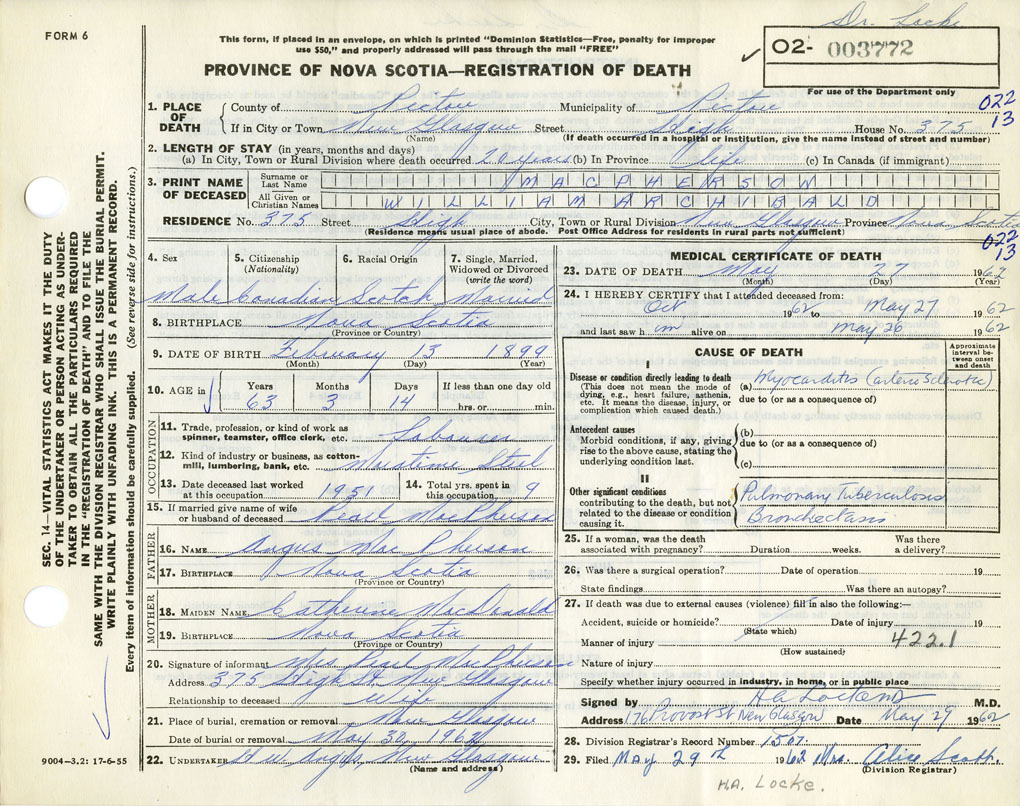 Dr. Locke
FORM 6
This form, if placed in an envelope, on which is printed "Dominion Statistics—Free, penalty for improper
use $50," and properly addressed will pass through the mail "FREE"
✓ 02- 003772
For use of the Department only
PROVINCE OF NOVA SCOTIA—REGISTRATION OF DEATH
SEC. 14—VITAL STATISTICS ACT MAKES IT THE DUTY
OF THE UNDERTAKER OR PERSON ACTING AS UNDER-
TAKER TO OBTAIN ALL THE PARTICULARS REQUIRED
IN THE "REGISTRATION OF DEATH" AND TO FILE THE
SAME WITH THE DIVISION REGISTRAR WHO SHALL ISSUE THE BURIAL PERMIT.
WRITE PLAINLY WITH UNFADING INK. THIS IS A PERMANENT RECORD.
Every item of information should be carefully supplied. (See reverse side for instructions.)
022
13
1. PLACE OF DEATH County of Pictou Municipality of Pictou
If in City or Town New Glasgow Street House No. 375
(Name) (If death occurred in a hospital or institution, give the name instead of street and number)
2. LENGTH OF STAY (in years, months and days)
(a) In City, Town or Rural Division where death occurred 20 years (b) In Province life (c) In Canada (if immigrant)
3. PRINT NAME OF DECEASED Surname or Last Name MACPHERSON
All Given or Christian Names WILLIAM ARCHIBALD
RESIDENCE No. 375 Street City, Town or Rural Division New Glasgow Province Nova Scotia
(Residence means usual place of abode. Post Office Address for residents in rural parts not sufficient)
022
13
4. Sex 5. Citizenship (Nationality) 6. Racial Origin 7. Single, Married, Widowed or Divorced (write the word)
Male Canadian Scotch Married
8. BIRTHPLACE Nova Scotia
(Province or Country)
9. DATE OF BIRTH February 13 1899
(Month) (Day) (Year)
10. AGE in Years Months Days If less than one day old
63 3 14 hrs. or min.
OCCUPATION
11. Trade, profession, or kind of work as spinner, teamster, office clerk, etc. Labourer
12. Kind of industry or business, as cotton-mill, lumbering, bank, etc. Maritime Steel
13. Date deceased last worked at this occupation 1951 14. Total yrs. spent in this occupation 9
15. If married give name of wife or husband of deceased Pearl MacPherson
FATHER
16. NAME Angus MacPherson
17. BIRTHPLACE Nova Scotia
(Province or Country)
MOTHER
18. MAIDEN NAME Catherine MacDonald
19. BIRTHPLACE Nova Scotia
(Province or Country)
20. Signature of informant Mrs Pearl MacPherson
Address 375 St New Glasgow
Relationship to deceased Wife
21. Place of burial, cremation or removal New Glasgow
Date of burial or removal May 30, 1962
22. UNDERTAKER New Glasgow
(Name and address)
9004-3.2: 17-6-55
MEDICAL CERTIFICATE OF DEATH
23. DATE OF DEATH May 27 1962
(Month) (Day) (Year)
24. I HEREBY CERTIFY that I attended deceased from:
Oct 1962 to May 27 1962
and last saw him alive on May 26 1962
CAUSE OF DEATH
Approximate interval between onset and death
I
Disease or condition directly leading to death
(This does not mean the mode of dying, e.g., heart failure, asthenia, etc. It means the disease, injury, or complication which caused death.)
(a) Myocarditis (arteriosclerotic)
due to (or as a consequence of)
Antecedent causes
Morbid conditions, if any, giving rise to the above cause, stating the underlying condition last.
(b)
due to (or as a consequence of)
(c)
II
Other significant conditions contributing to the death, but not related to the disease or condition causing it.
Pulmonary Tuberculosis
Bronchectasis
25. If a woman, was the death associated with pregnancy? Duration weeks. Was there a delivery?
26. Was there a surgical operation? Date of operation 19
State findings Was there an autopsy?
27. If death was due to external causes (violence) fill in also the following:—
Accident, suicide or homicide? Date of injury 19
(State which)
Manner of injury 422.1
(How sustained)
Nature of injury
Specify whether injury occurred in industry, in home, or in public place
Signed by M.D.
Address 176 Provost St New Glasgow Date May 29 1962
28. Division Registrar's Record Number 1567.
29. Filed May 29th 1962 Mrs. Alice Scott.
(Division Registrar)
H.A. LOCKE.